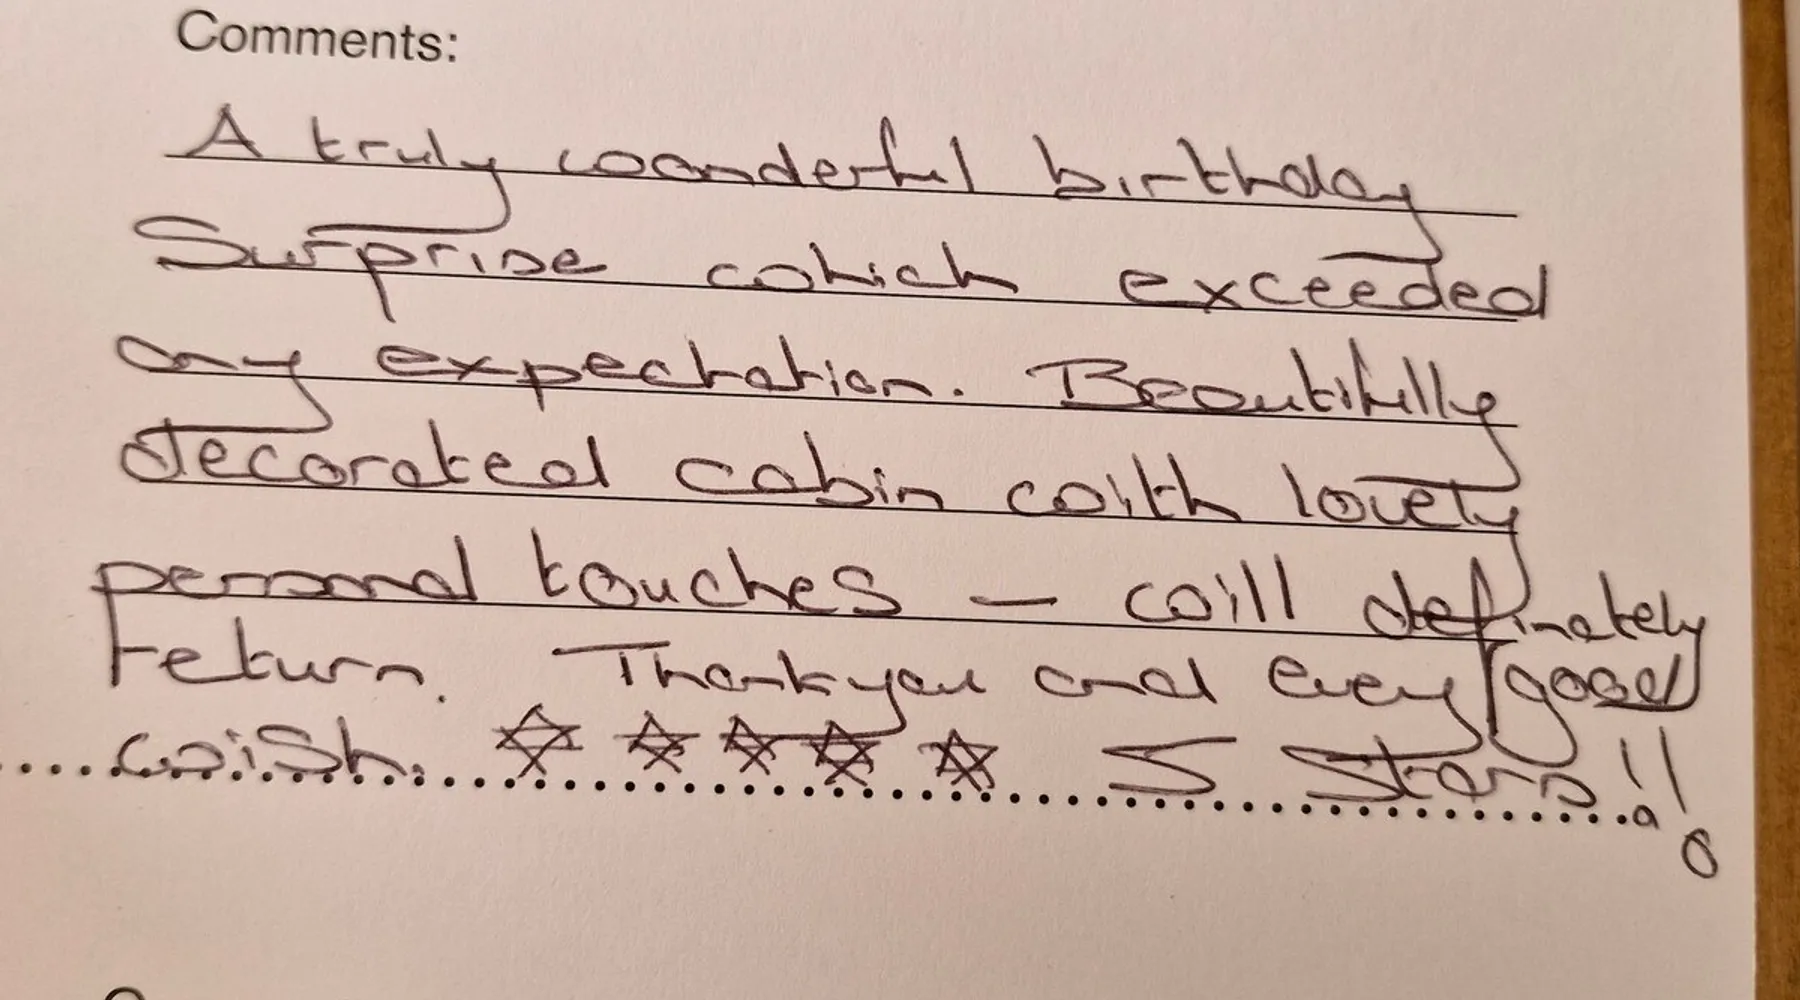 Comments:
A truly wonderful birthday
Surprise which exceeded
any expectation. Beautifully
decorated cabin with lovely
personal touches — will definately
return. Thankyou and every good
wish. ☆ ☆ ☆ ☆ ☆ 5 Stars!!